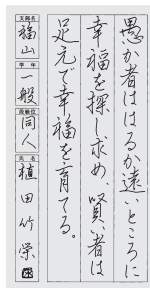 愚か者ははるか遠いところに
幸福を探し求め、賢い者は
足元で幸福を育てる。
支部名
福山
学年
一般
段級位
同人
氏名
植田竹栄